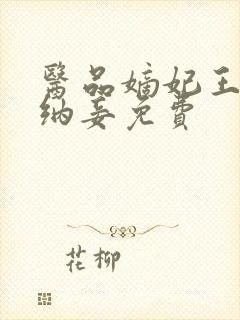 醫品嫡妃王
纳妾免費
花柳